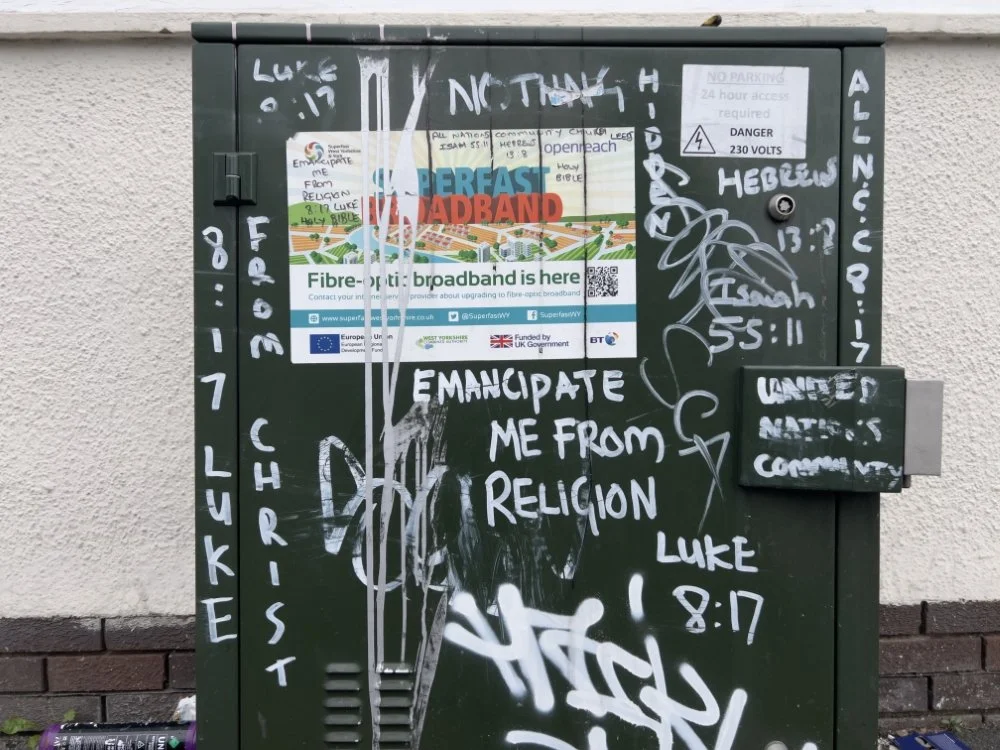 LUKE
8:17
NOTHING
HIDDEN
NO PARKING
24 hour access
required
DANGER
230 VOLTS
ALL N.C.C 8:17
ALL NATIONS COMMUNITY CHURCH LEEDS
ISAIAH 55:11 HEBREWS
13:8
HOLY
BIBLE
Superfast
West Yorkshire
& York
openreach
EMANCIPATE
ME
FROM
RELIGION
8:17 LUKE
HOLY BIBLE
SUPERFAST
BROADBAND
Fibre-optic broadband is here
Contact your internet service provider about upgrading to fibre-optic broadband
www.superfastwestyorkshire.co.uk
@SuperfastWY
SuperfastWY
European Union
European Regional
Development Fund
WEST YORKSHIRE
COMBINED AUTHORITY
Funded by
UK Government
BT
HEBREWS
13:8
Isaiah
55:11
8:17 LUKE
FROM CHRIST
EMANCIPATE
ME FROM
RELIGION
UNITED
NATIONS
COMMUNITY
LUKE
8:17